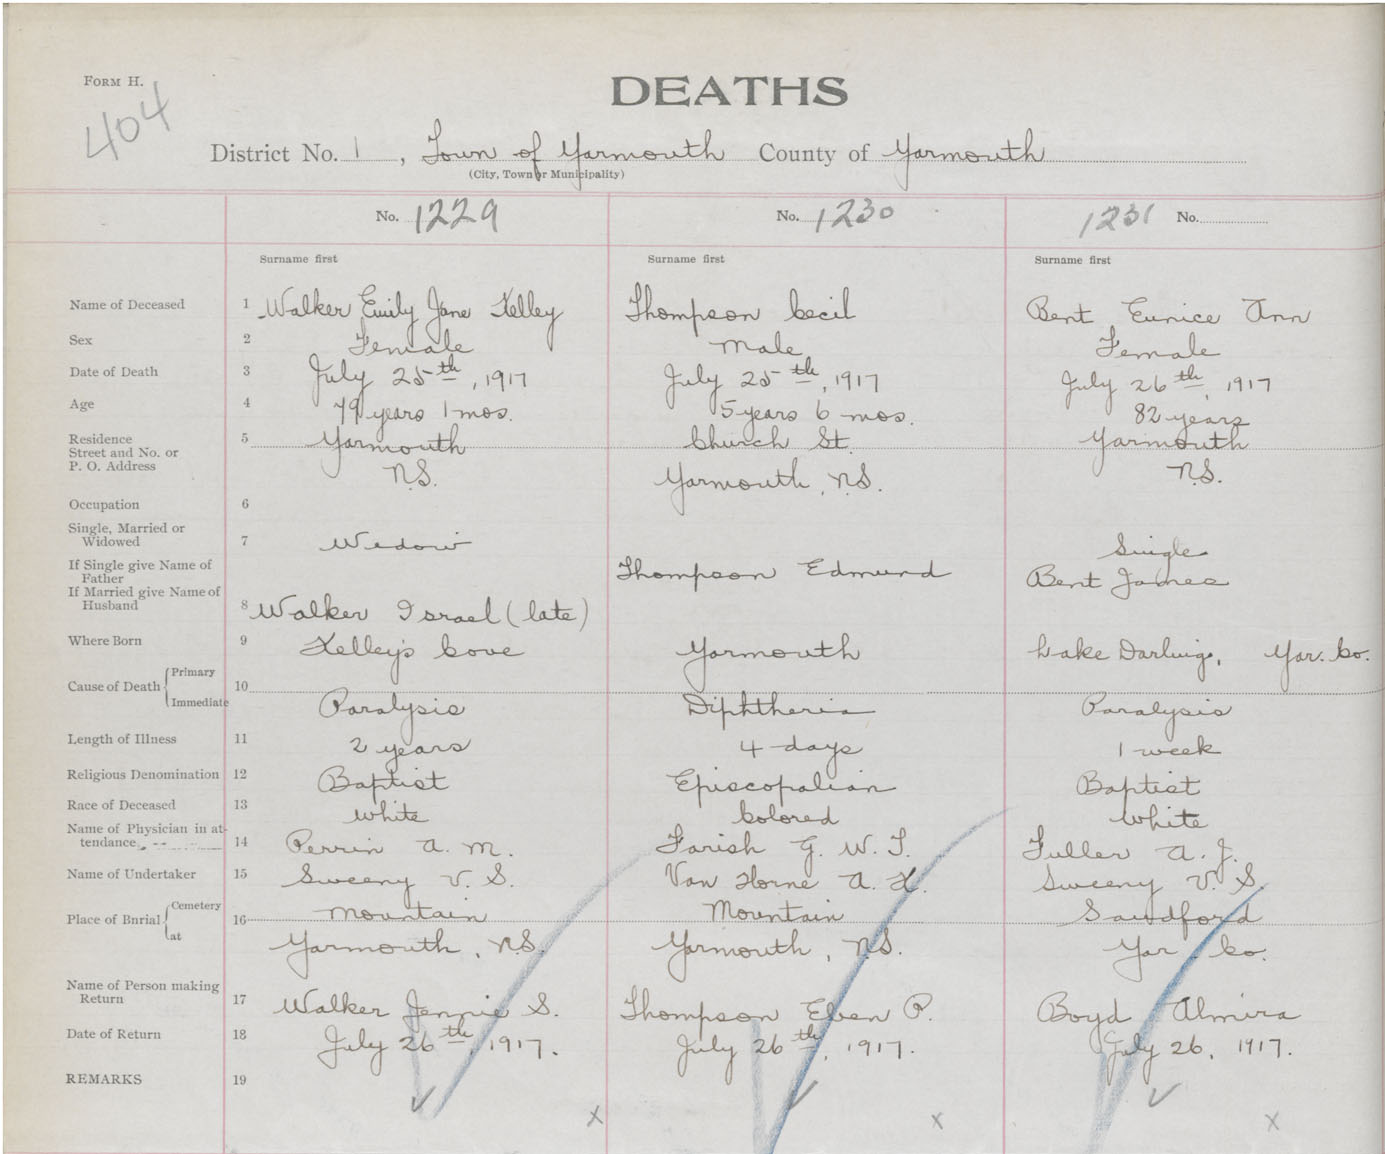 FORM H.
404
DEATHS
District No. 1, Town of Yarmouth County of Yarmouth
(City, Town or Municipality)
No. 1229 No. 1230 1231 No.
Surname first Surname first Surname first
Name of Deceased 1 Walker Emily Jane Kelley Thompson Cecil Bent Eunice Ann
Sex 2 Female Male Female
Date of Death 3 July 25th, 1917 July 25th, 1917 July 26th, 1917
Age 4 79 years 1 mos. 5 years 6 mos. 82 years
Residence 5 Yarmouth Church St. Yarmouth
Street and No. or
P. O. Address N.S. Yarmouth, N.S. N.S.
Occupation 6
Single, Married or
Widowed 7 Widow Single
If Single give Name of
Father Thompson Edmund Bent James
If Married give Name of
Husband 8 Walker Israel (late)
Where Born 9 Kelley's Cove Yarmouth Lake Darling, Yar. Co.
Primary
Cause of Death 10
Immediate Paralysis Diphtheria Paralysis
Length of Illness 11 2 years 4 days 1 week
Religious Denomination 12 Baptist Episcopalian Baptist
Race of Deceased 13 White Colored White
Name of Physician in at-
tendance 14 Perrin A. M. Farish G. W. T. Fuller A. J.
Name of Undertaker 15 Sweeny V. S. Van Horne A. K. Sweeny V. S.
Cemetery Mountain Mountain Sandford
Place of Burial 16
at Yarmouth, N.S. Yarmouth, N.S. Yar. Co.
Name of Person making
Return 17 Walker Jennie S. Thompson Eben P. Boyd Almira
Date of Return 18 July 26th, 1917. July 26th, 1917. July 26, 1917.
REMARKS 19
x x x